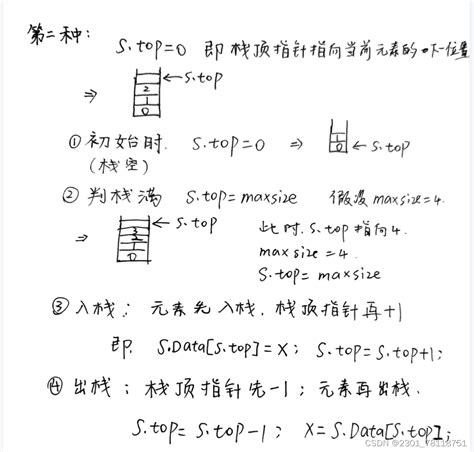 第二种:
S.top=0 即栈顶指针指向当前元素的下一位置
⇒ ←S.top
2
1
0
①初始时. S.top=0 ⇒ ←S.top
1
0
(栈空)
②判栈满 S.top=maxsize 假设maxsize=4.
⇒ ←S.top 此时.S.top指向4.
3
2
1
0
maxsize=4.
S.top=maxsize
③入栈: 元素先入栈.栈顶指针再+1
即. S.Data[S.top]=X; S.top=S.top+1;
④出栈: 栈顶指针先-1; 元素再出栈.
S.top=S.top-1; X=S.Data[S.top];
CSDN @2301_78118751